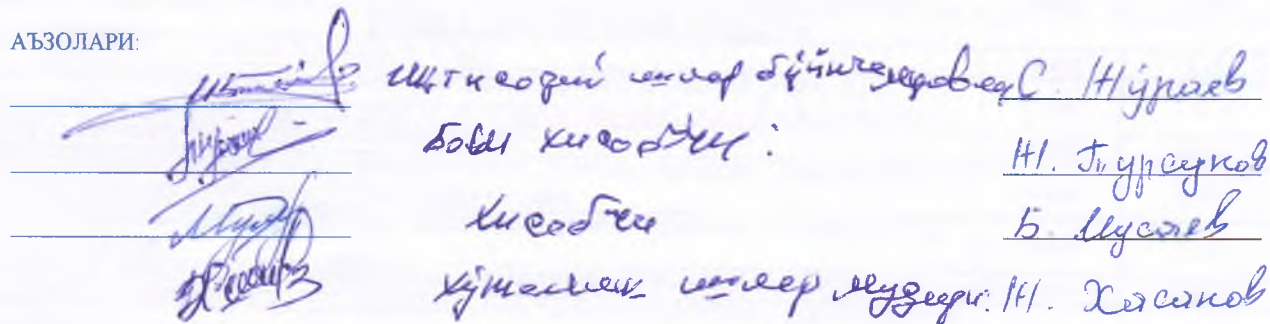 АЪЗОЛАРИ:
Иқтисодий ишлар бўйича С. Жўраев
Бош хисобчи: Ж. Турсунов
Хисобчи Б. Мусаев
Хўжалик ишлар мудири: Ж. Хасанов